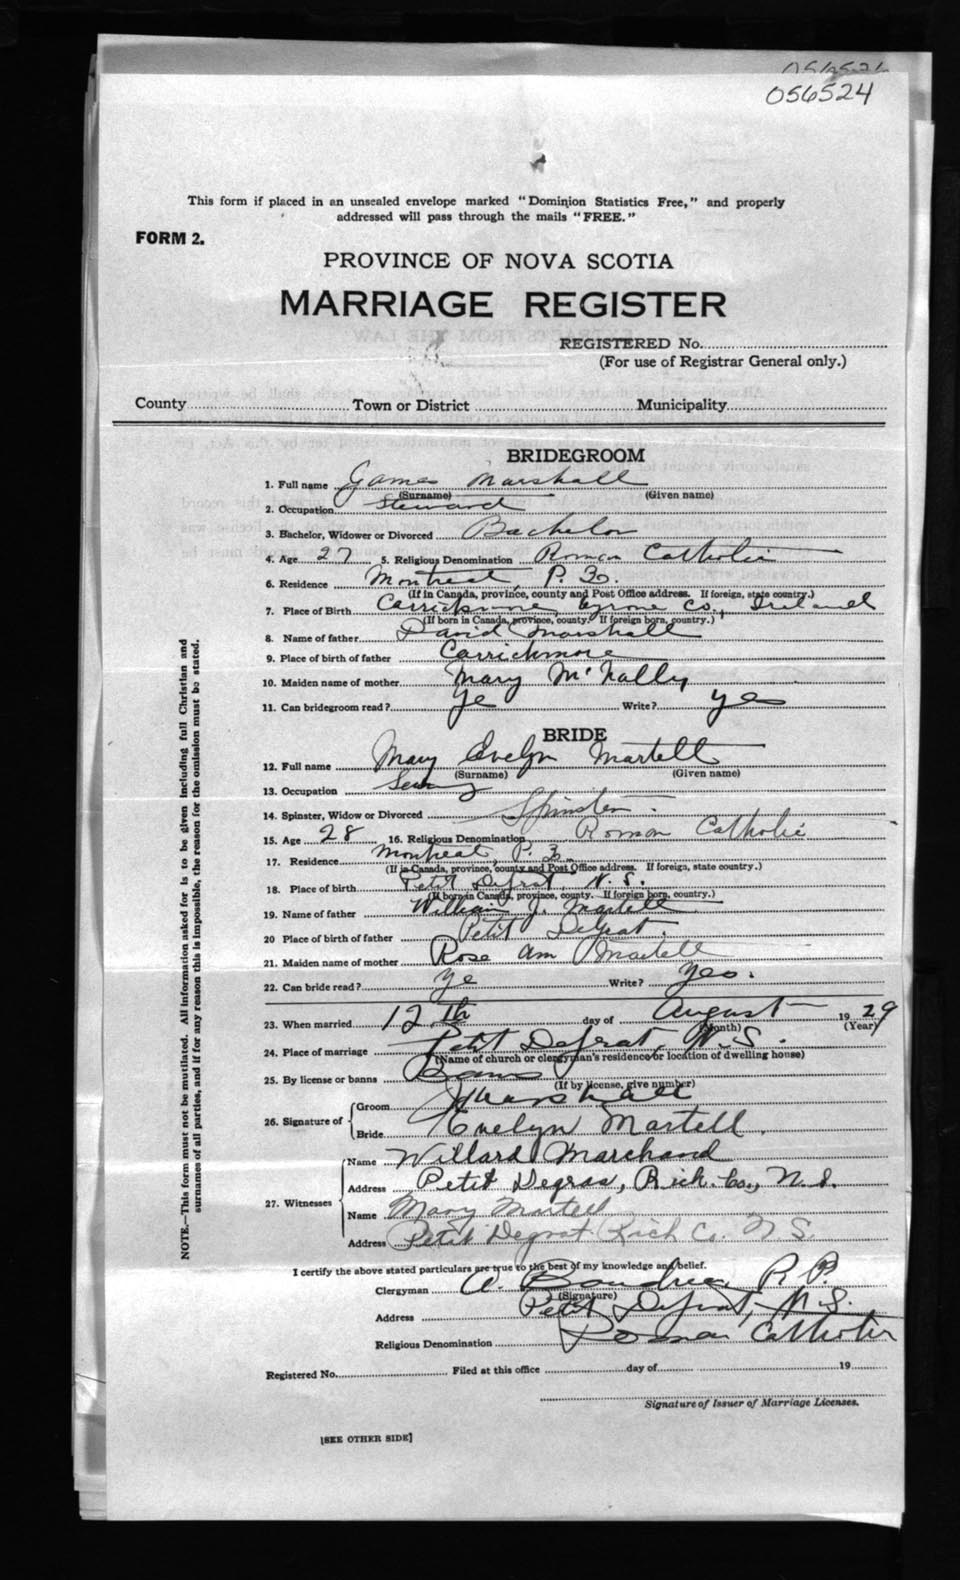 056526
056524
This form if placed in an unsealed envelope marked "Dominion Statistics Free," and properly
addressed will pass through the mails "FREE."
FORM 2.
PROVINCE OF NOVA SCOTIA
MARRIAGE REGISTER
REGISTERED No.
(For use of Registrar General only.)
County Town or District Municipality
BRIDEGROOM
1. Full name James Marshall
(Surname) (Given name)
2. Occupation Steward
3. Bachelor, Widower or Divorced Bachelor
4. Age 27 5. Religious Denomination Roman Catholic
6. Residence Montreal, P. Q.
(If in Canada, province, county and Post Office address. If foreign, state country.)
7. Place of Birth Carrickmore Tyrone Co., Ireland
(If born in Canada, province, county. If foreign born, country.)
8. Name of father David Marshall
9. Place of birth of father Carrickmore
10. Maiden name of mother Mary McNally
11. Can bridegroom read? Ye Write? yes
BRIDE
12. Full name Mary Evelyn Martell
(Surname) (Given name)
13. Occupation
14. Spinster, Widow or Divorced Spinster
15. Age 28 16. Religious Denomination Roman Catholic
17. Residence Montreal, P. Q.
(If in Canada, province, county and Post Office address. If foreign, state country.)
18. Place of birth Petit Degrat, N. S.
(If born in Canada, province, county. If foreign born, country.)
19. Name of father William J. Martell
20 Place of birth of father Petit Degrat.
21. Maiden name of mother Rose Ann Martell
22. Can bride read? Ye Write? Yes.
23. When married 12th day of August 1929
(Month) (Year)
24. Place of marriage Petit Degrat, N. S.
(Name of church or clergyman's residence or location of dwelling house)
25. By license or banns Banns
(If by license, give number)
26. Signature of Groom J Marshall
Bride Evelyn Martell.
27. Witnesses Name Willard Marchand
Address Petit Degras, Rich. Co., N. S.
Name Mary Martell
Address Petit Degrat Rich Co. N S.
I certify the above stated particulars are true to the best of my knowledge and belief.
Clergyman A. Boudreau P.P.
(Signature)
Address Petit Degrat, N. S.
Religious Denomination Roman Catholic
Registered No. Filed at this office day of 19
Signature of Issuer of Marriage Licenses.
[SEE OTHER SIDE]
NOTE.—This form must not be mutilated. All information asked for is to be given including full Christian and
surnames of all parties, and if for any reason this is impossible, the reason for the omission must be stated.